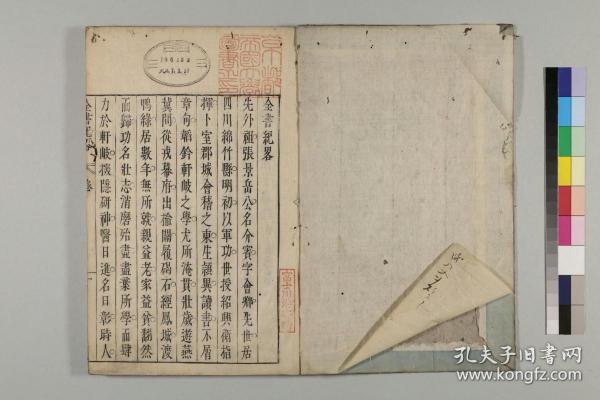 全書紀畧
先外祖張景岳公名介賓字會卿先世居
四川綿竹縣明初以軍功世授紹興衛指
揮卜室郡城會稽之東生頴異讀書不屑
章句韜鈐軒岐之學尤所淹貫壯歲遊燕
冀間從戎幕府出榆關履碣石經鳳城渡
鴨綠居數年無所就親益老家益貧翻然
而歸功名壯志消磨殆盡盡棄所學而肆
力於軒岐探隱研神醫日進名日彰時人
孔夫子旧书网
www.kongfz.com